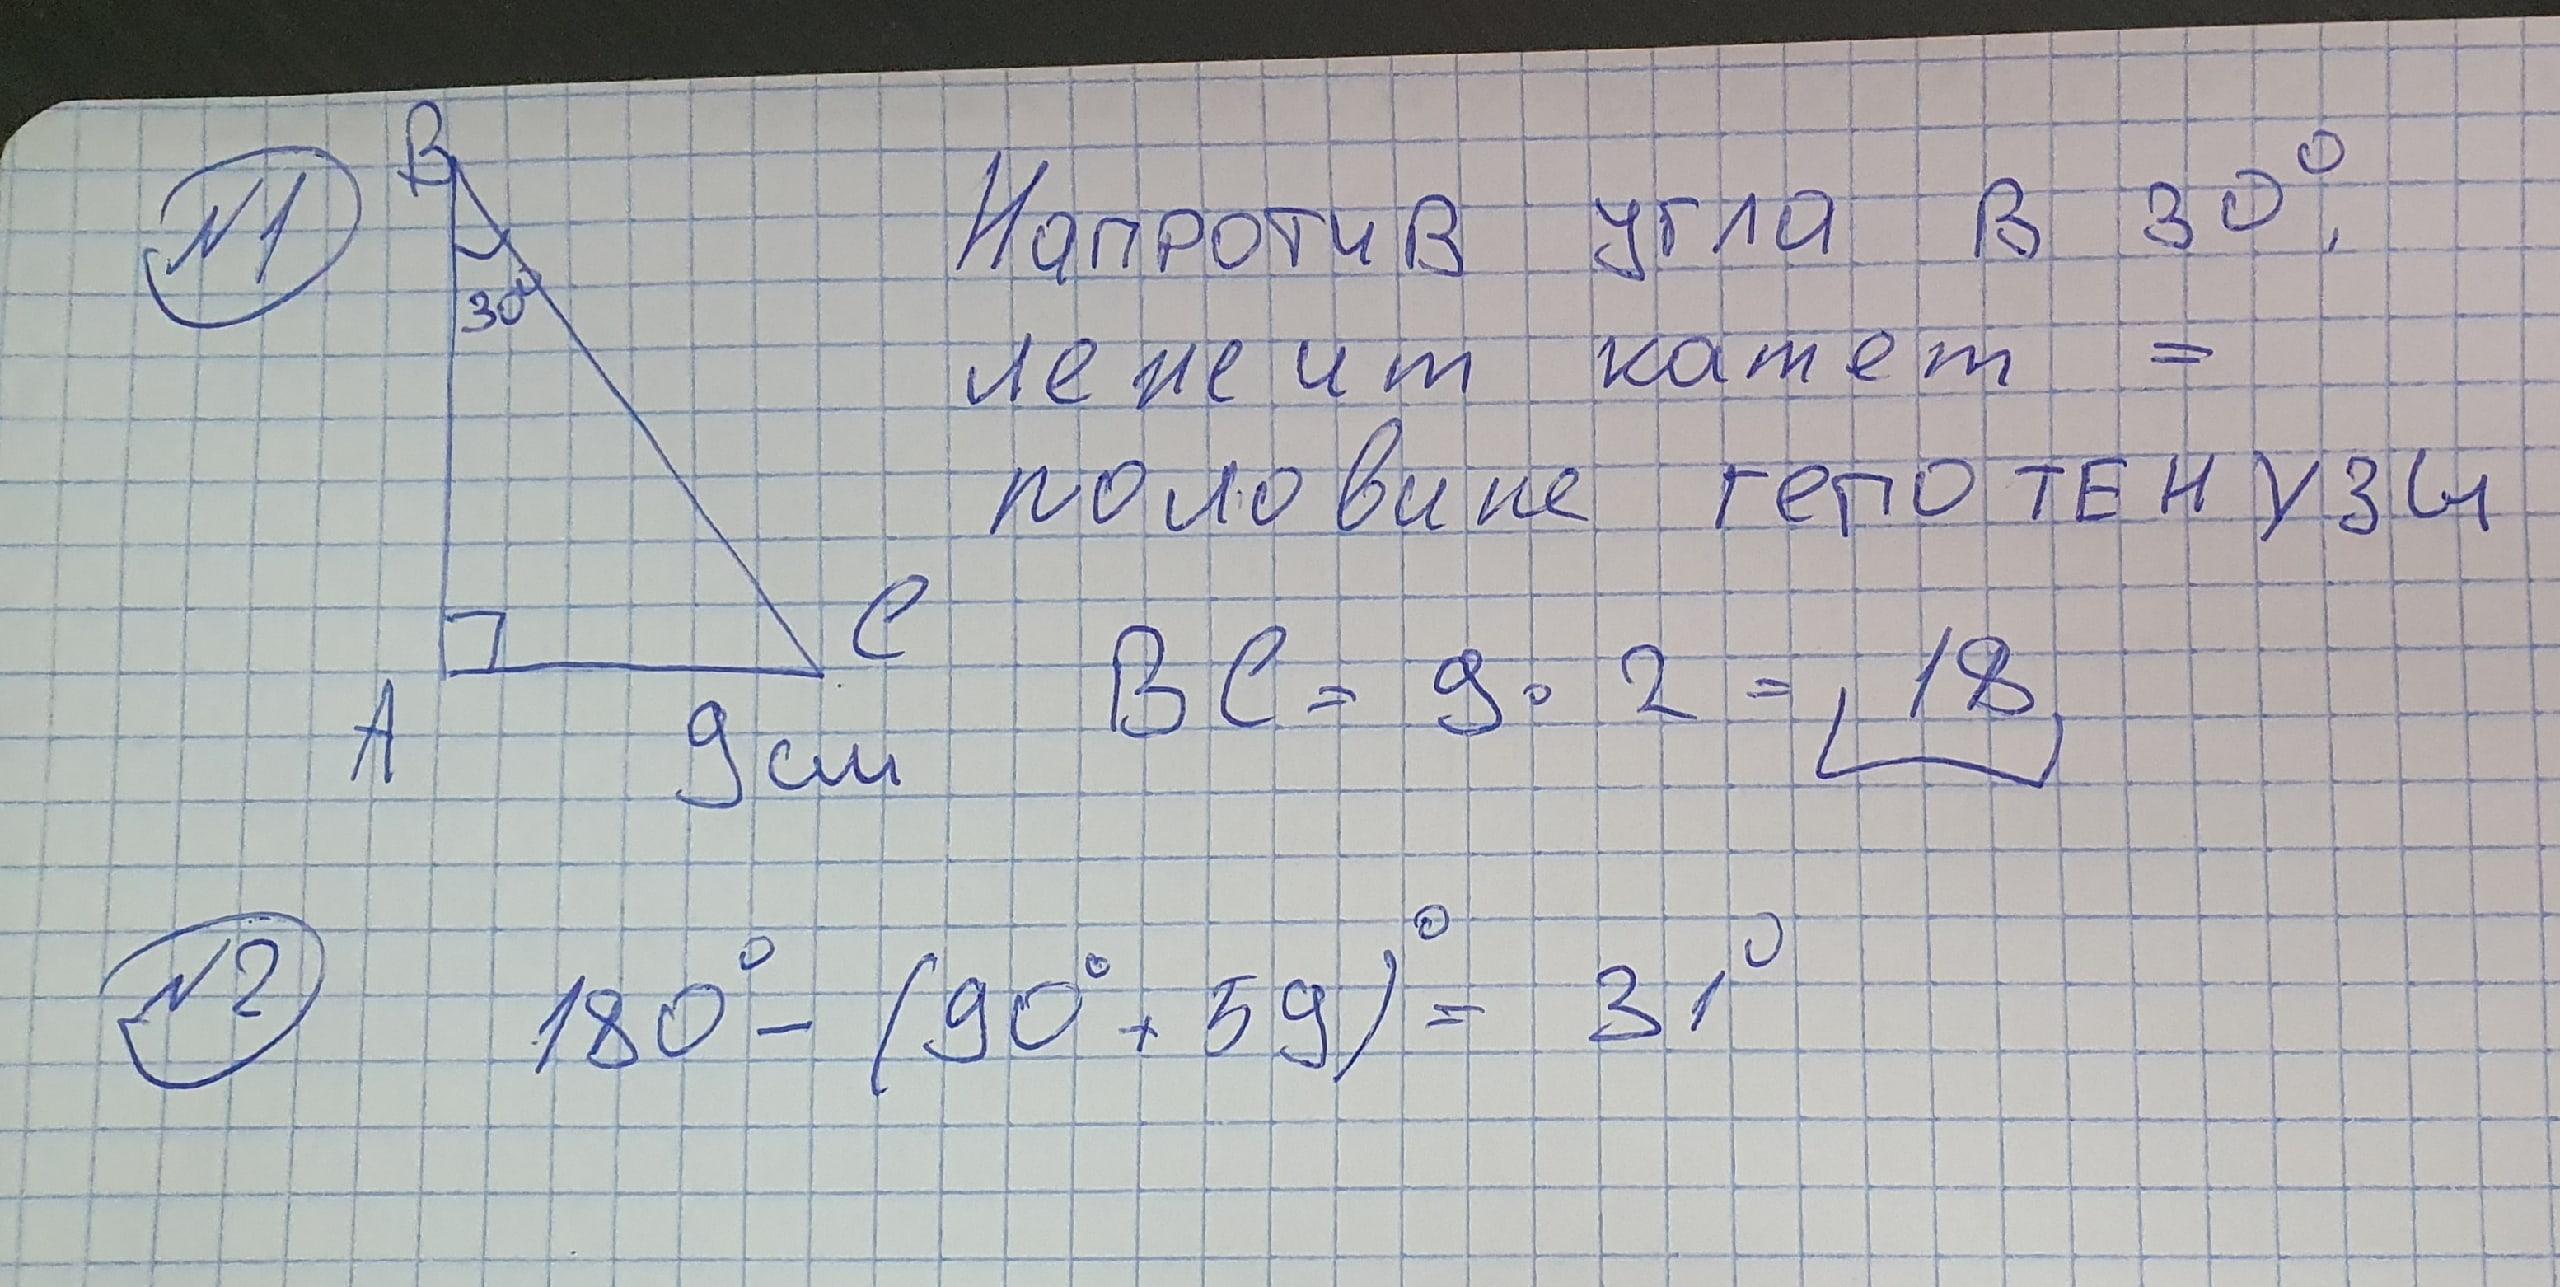 №1
B
30°
A
C
9 см
Напротив угла в 30°,
лежит катет =
половине гепотенузы
BC = 9 · 2 = 18
№2
180° - (90° + 59)° = 31°